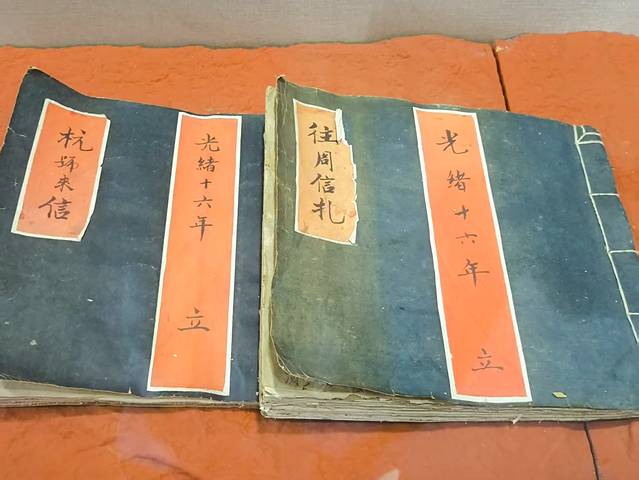 光緒十六年 立
往周信札
光緒十六年 立
杭来信